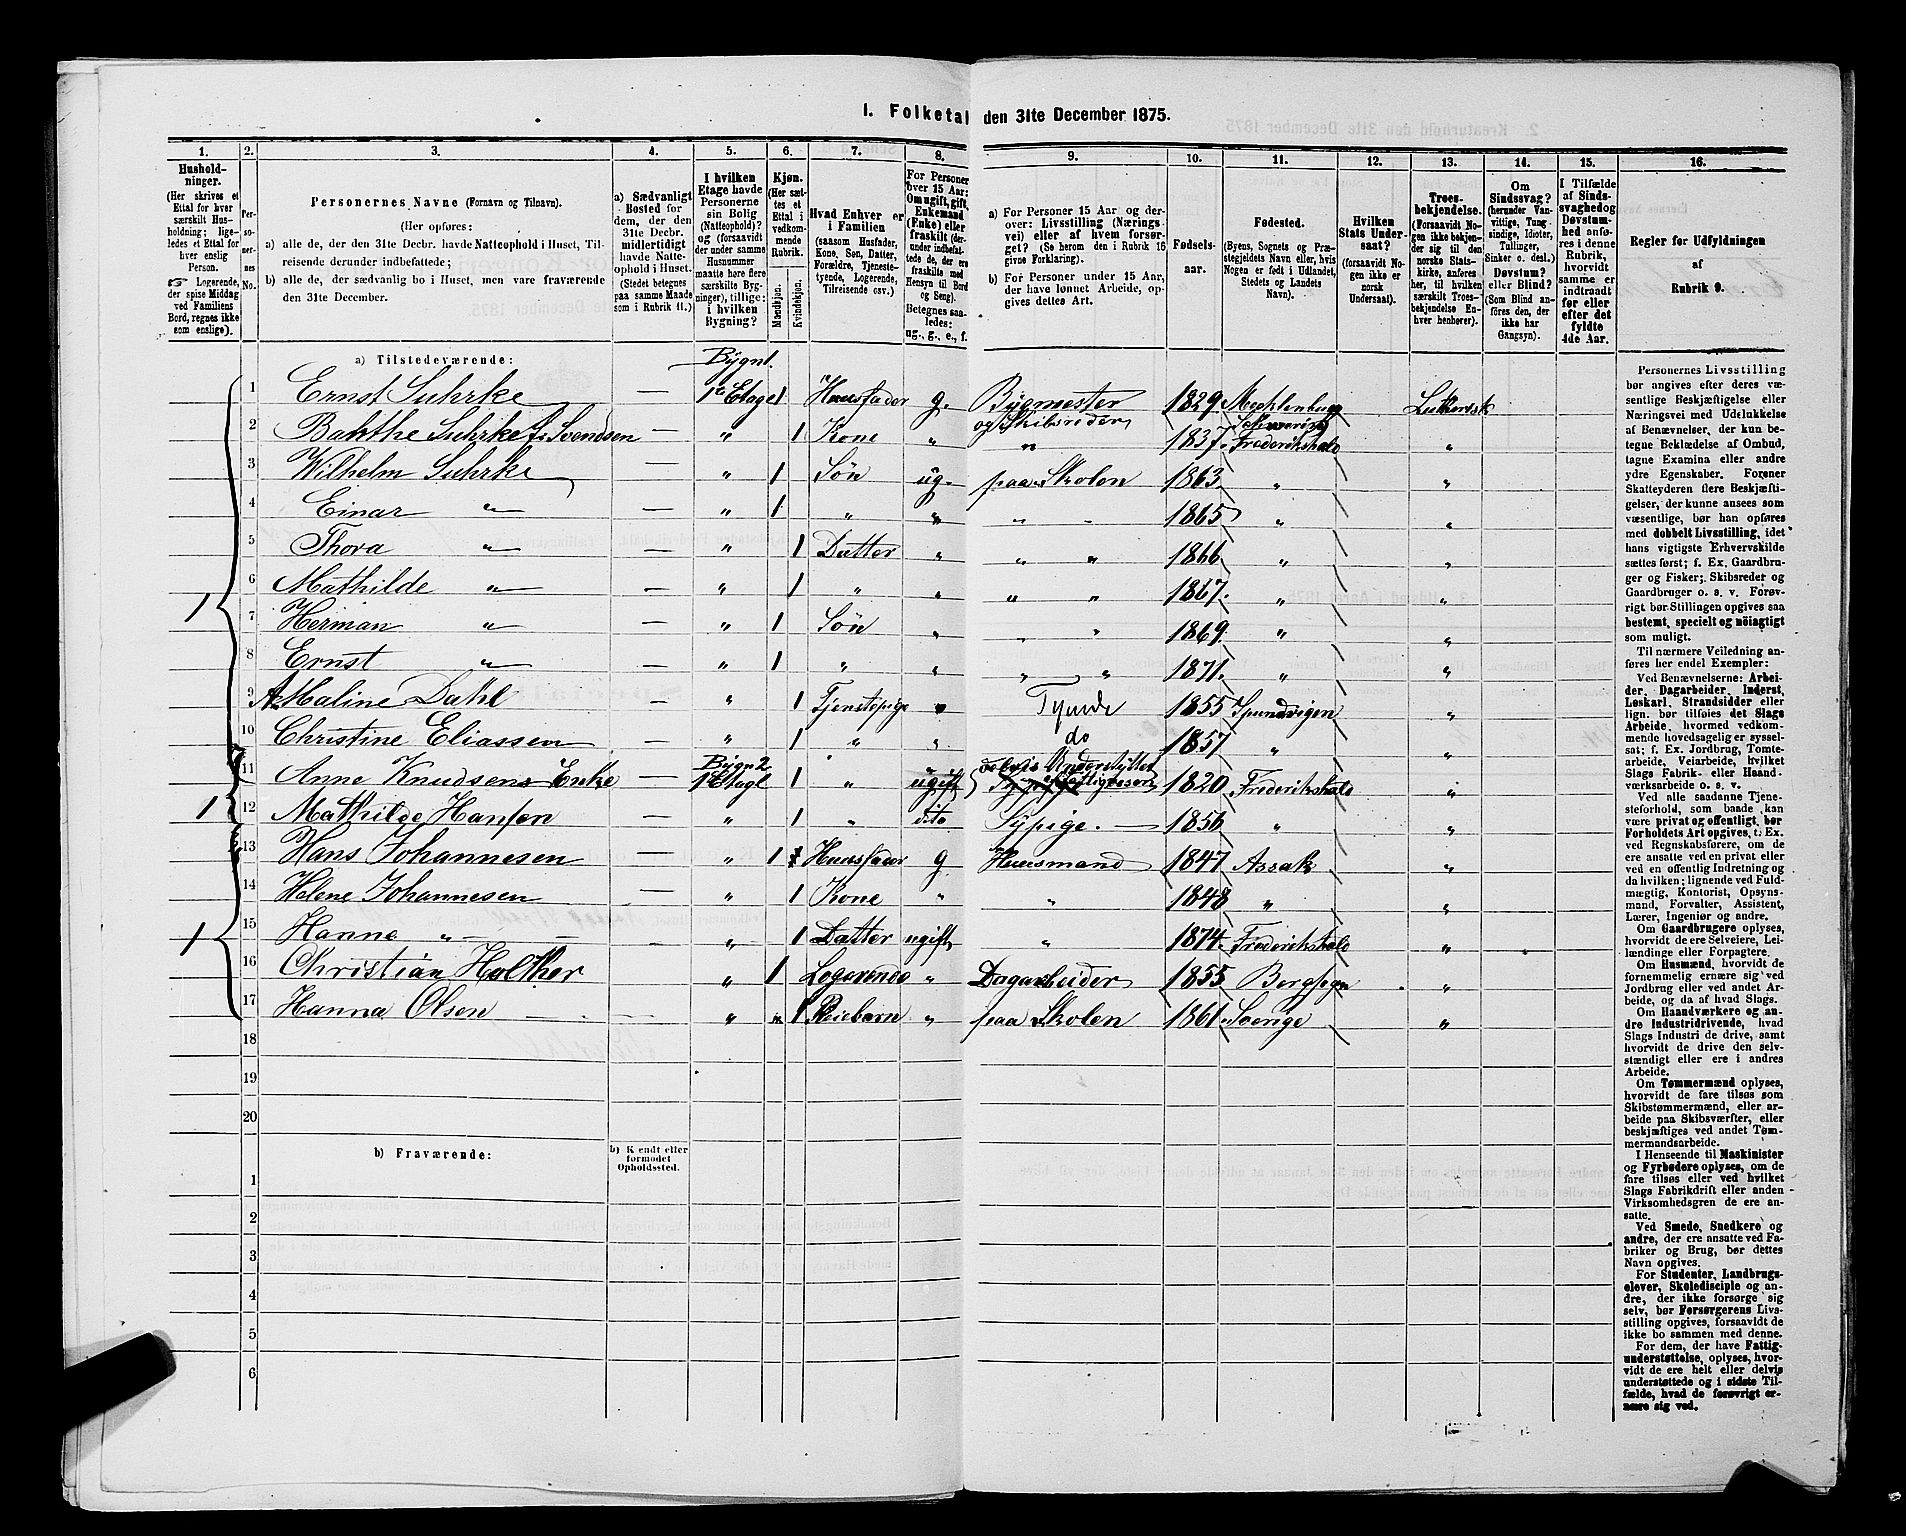 I. Folketal den 31te December 1875.
1. 2. 3. 4. 5. 6. 7. 8. 9. 10. 11. 12. 13. 14. 15. 16.
Husholdninger.
(Her skrives et
Ettal for hver
særskilt Husholdning; ligeledes et Ettal for
hver enslig
Person.
Logerende,
der spise Middag
ved Familiens
Bord, regnes ikke
som enslige).
Personernes No.
Personernes Navne (Fornavn og Tilnavn).
(Her opføres:
a) alle de, der den 31te Decbr. havde Natteophold i Huset, Tilreisende derunder indbefattede;
b) alle de, der sædvanlig bo i Huset, men vare fraværende
den 31te December.
a) Sædvanligt
Bosted for
dem, der den
31te Decbr.
midlertidigt
havde Natteophold i Huset.
(Stedet betegnes
paa samme Maade
som i Rubrik 11.)
I hvilken
Etage havde
Personerne
sin Bolig
(Natteophold)?
og (forsaavidt
der under samme
Husnummer
maatte høre flere
særskilte Bygninger), tillige:
i hvilken
Bygning?
Kjøn.
(Her sættes et
Ettal i
vedkommende
Rubrik.
Mandkjøn.
Kvindekjøn.
Hvad Enhver er
i Familien
(saasom Husfader,
Kone, Søn, Datter,
Forældre, Tjenestetyende, Logerende,
Tilreisende osv.)
For Personer
over 15 Aar:
Om ugift, gift,
Enkemand
(Enke) eller
fraskilt (derunder indbefattede de, der ere
fraskilte med
Hensyn til Bord
og Seng).
Betegnes saaledes:
ug., g., e., f.
a) For Personer 15 Aar og derover: Livsstilling (Næringsvei) eller af hvem forsørget? (Se herom den i Rubrik 16
givne Forklaring).
b) For Personer under 15 Aar,
der have lønnet Arbeide, opgives dettes Art.
Fødselsaar.
Fødested.
(Byens, Sognets og Præstegjeldets Navn eller, hvis
Nogen er født i Udlandet,
Stedets og Landets
Navn).
Hvilken
Stats Undersaat?
(forsaavidt Nogen ikke er
norsk
Undersaat).
Troesbekjendelse.
(Forsaavidt Nogen ikke bekjender sig til den
norske Statskirke, anføres
her, til hvilken
særskilt Troesbekjendelse Enhver henhører).
Om
Sindssvag?
(herunder Vanvittige, Tungsindige, Idioter,
Tullinger,
Sinker o. desl.)
Døvstum?
eller Blind?
(Som Blind anføres den, der
ikke har
Gangsyn).
I Tilfælde
af Sindssvaghed og
Døvstumhed anføres i denne
Rubrik,
hvorvidt
samme er
indtraadt
før eller
efter det
fyldte
4de Aar.
Regler for Udfyldningen
af
Rubrik 9.
a) Tilstedeværende:
Bygn1.
1 Ernst Suhrke — 1e Etage 1 Huusfader g. Bygmester og Skibsreder 1829 Mechlenburg Schwerin Luthersk
2 Bakthe Suhrke f. Svendsen — " 1 Kone " " 1837 Frederikshald "
3 Wilhelm Suhrke — " 1 Søn ug. paa Skolen 1863 " "
4 Einar " — " 1 " " " 1865 " "
5 Thora " — " 1 Datter " " " 1866 " "
6 Mathilde " — " 1 " " " " 1867 " "
1 7 Herman " — " 1 Søn " " " 1869 " "
8 Ernst " — " 1 " " " " 1871 " "
9 A. Maline Dahl — " 1 Tjenstepige " Tyende 1855 Spundvigen "
10 Christine Eliassen — " 1 " " do 1857 " "
Bygn 2
11 Anne Knudsens Enke — 1e Etage 1 " ugift delvis Understøttet af Fattigvæsen 1820 Frederikshald "
1 12 Mathilde Hansen — " 1 " dito Sypige. — 1856 " "
13 Hans Johannesen " 1 Huusfader g Huusmand 1847 Assak "
14 Helene Johannesen — " 1 Kone " " 1848 " "
1 15 Hanne " — " 1 Datter ugift " 1874 Frederikshald "
16 Christian Holther " 1 Logerende " Dagarbeider 1855 Berg sogn "
17 Hanna Olsen — " 1 Pleiebarn " paa Skolen 1861 Sverige "
18
19
20
b) Fraværende:
b) Kjendt eller
formodet
Opholdssted.
1
2
3
4
5
6
Personernes Livsstilling
bør angives efter deres væsentlige Beskjæftigelse eller
Næringsvei med Udelukkelse
af Benævnelser, der kun betegne Beklædelse af Ombud,
tagne Examina eller andre
ydre Egenskaber. Forener
Skatteyderen flere Beskjæftigelser, der kunne ansees som
væsentlige, bør han opføres
med dobbelt Livsstilling, idet
hans vigtigste Erhvervskilde
sættes først; f. Ex. Gaardbruger og Fisker; Skibsreder og
Gaardbruger o. s. v. Forøvrigt bør Stillingen opgives saa
bestemt, specielt og nøiagtigt
som muligt.
Til nærmere Veiledning anføres her endel Exempler:
Ved Benævnelserne: Arbeider, Dagarbeider, Inderst,
Løskarl, Strandsidder eller
lign. bør tilføies det Slags
Arbeide, hvormed vedkommende hovedsagelig er sysselsat; f. Ex. Jordbrug, Tomtearbeide, Veiarbeide, hvilket
Slags Fabrik- eller Haandværksarbeide o. s. v.
Ved alle saadanne Tjenesteforhold, som baade kan
være privat og offentligt, bør
Forholdets Art opgives, f. Ex.
ved Regnskabsførere, om de
ere ansatte ved en privat eller
ved en offentlig Indretning og
da hvilken; lignende ved Fuldmægtig, Kontorist, Opsynsmand, Forvalter, Assistent,
Lærer, Ingeniør og andre.
Om Gaardbrugere oplyses,
hvorvidt de ere Selveiere, Leilændinge eller Forpagtere.
Om Husmænd, hvorvidt de
fornemmelig ernære sig ved
Jordbrug eller ved andet Arbeide, og da af hvad Slags.
Om Haandværkere og andre Industridrivende, hvad
Slags Industri de drive, samt
hvorvidt de drive den selvstændigt eller ere i andres
Arbeide.
Om Tømmermænd oplyses,
hvorvidt de fare tilsøs som
Skibstømmermænd, eller arbeide paa Skibsværfter, eller
beskjæftiges ved andet Tømmermandsarbeide.
I Henseende til Maskinister
og Fyrbødere oplyses, om de
fare tilsøs eller ved hvilket
Slags Fabrikdrift eller anden
Virksomhedsgren de ere ansatte.
Ved Smede, Snedkere og
andre, der ere ansatte ved Fabriker og Brug, bør dettes
Navn opgives.
For Studenter, Landbrugselever, Skoledisciple og andre, der ikke forsørge sig
selv, bør Forsørgerens Livsstilling opgives, forsaavidt de
ikke bo sammen med denne.
For dem, der have Fattigunderstøttelse, oplyses, hvorvidt de ere helt eller delvis
understøttede og i sidste Tilfælde, hvad de forøvrigt ernære sig ved.